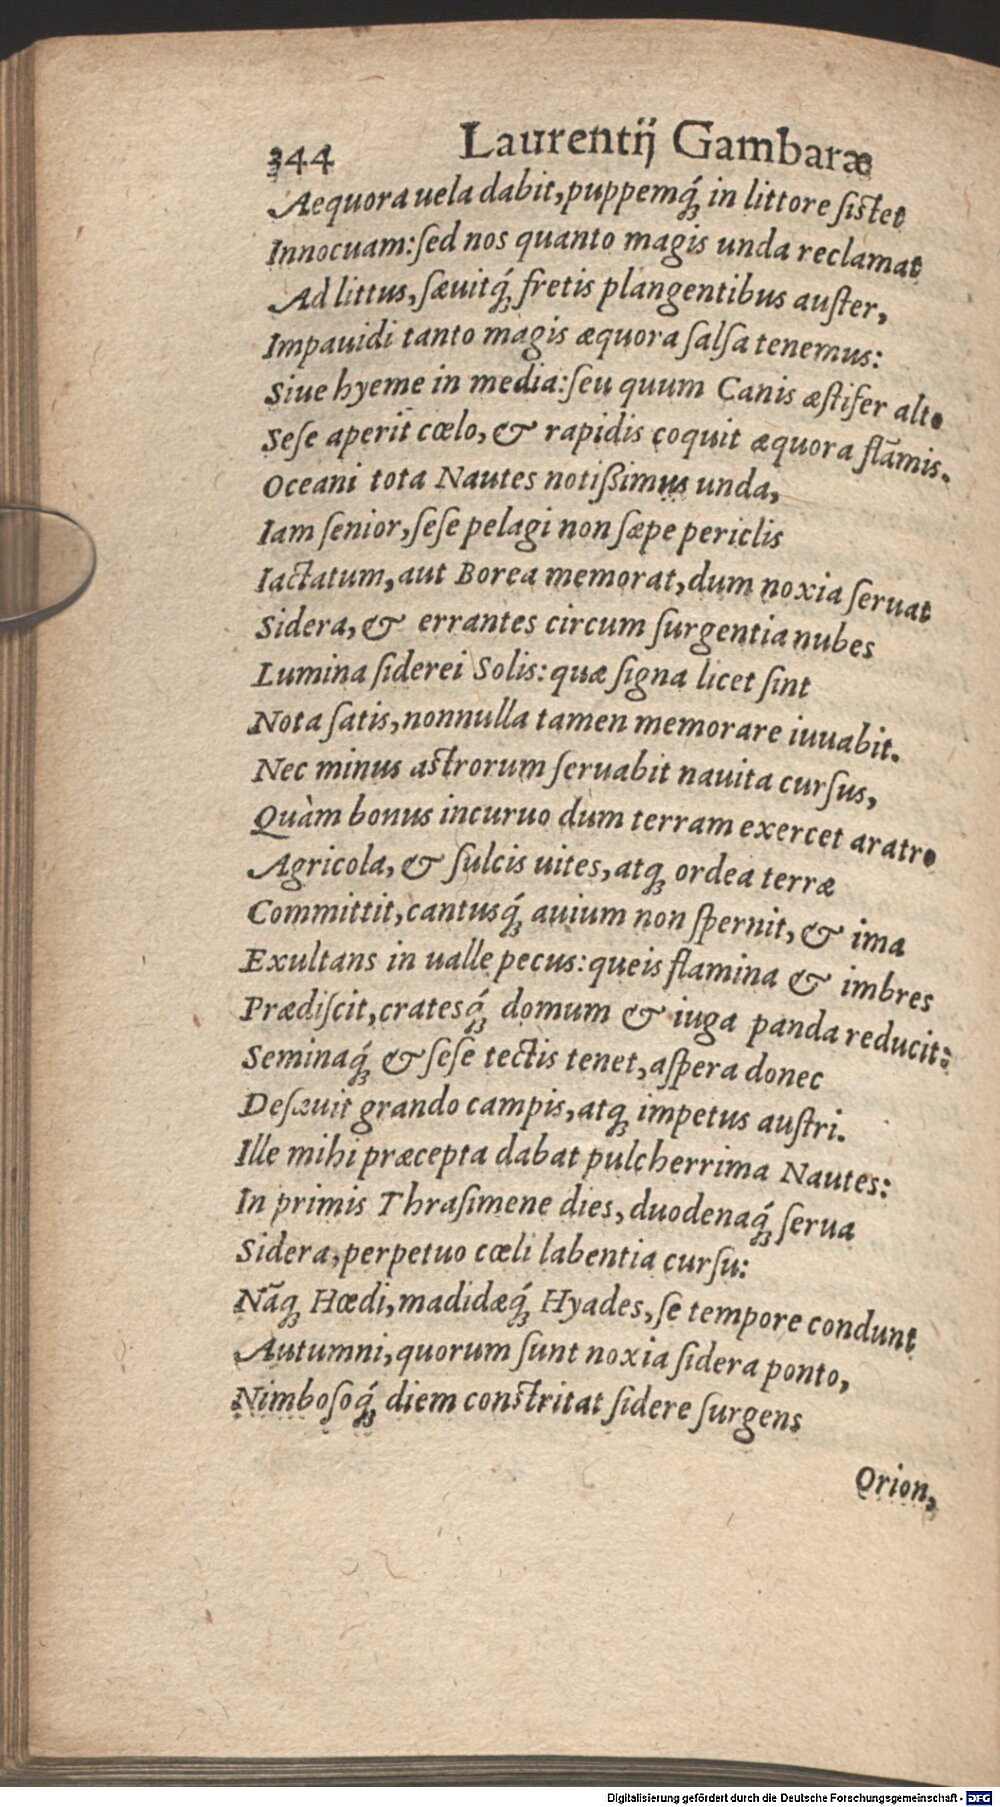 344 Laurentij Gambaræ
Aequora uela dabit, puppemq́; in littore ſistet
Innocuam: ſed nos quanto magis unda reclamat
Ad littus, ſæuitq́; fretis plangentibus auſter,
Impauidi tanto magis æquora ſalſa tenemus:
Siue hyeme in media: ſeu quum Canis æſtifer alto
Seſe aperit cœlo, & rapidis coquit æquora flāmis.
Oceani tota Nautes notißimus unda,
Iam ſenior, ſeſe pelagi non ſæpe periclis
Iactatum, aut Borea memorat, dum noxia ſeruat
Sidera, & errantes circum ſurgentia nubes
Lumina ſiderei Solis: quæ ſigna licet ſint
Nota ſatis, nonnulla tamen memorare iuuabit.
Nec minus astrorum ſeruabit nauita curſus,
Quàm bonus incuruo dum terram exercet aratro
Agricola, & ſulcis uites, atq; ordea terræ
Committit, cantusq́; auium non ſpernit, & ima
Exultans in ualle pecus: queis flamina & imbres
Prædiſcit, cratesq́; domum & iuga panda reducit:
Seminaq́; & ſeſe tectis tenet, aſpera donec
Deſæuit grando campis, atq; impetus auſtri.
Ille mihi præcepta dabat pulcherrima Nautes:
In primis Thraſimene dies, duodenaq́; ſerua
Sidera, perpetuo cœli labentia curſu:
Nāq; Hœdi, madidæq́; Hyades, ſe tempore condunt
Autumni, quorum ſunt noxia ſidera ponto,
Nimboſoq́; diem constritat ſidere ſurgens
Orion,
Digitalisierung gefördert durch die Deutsche Forschungsgemeinschaft - DFG